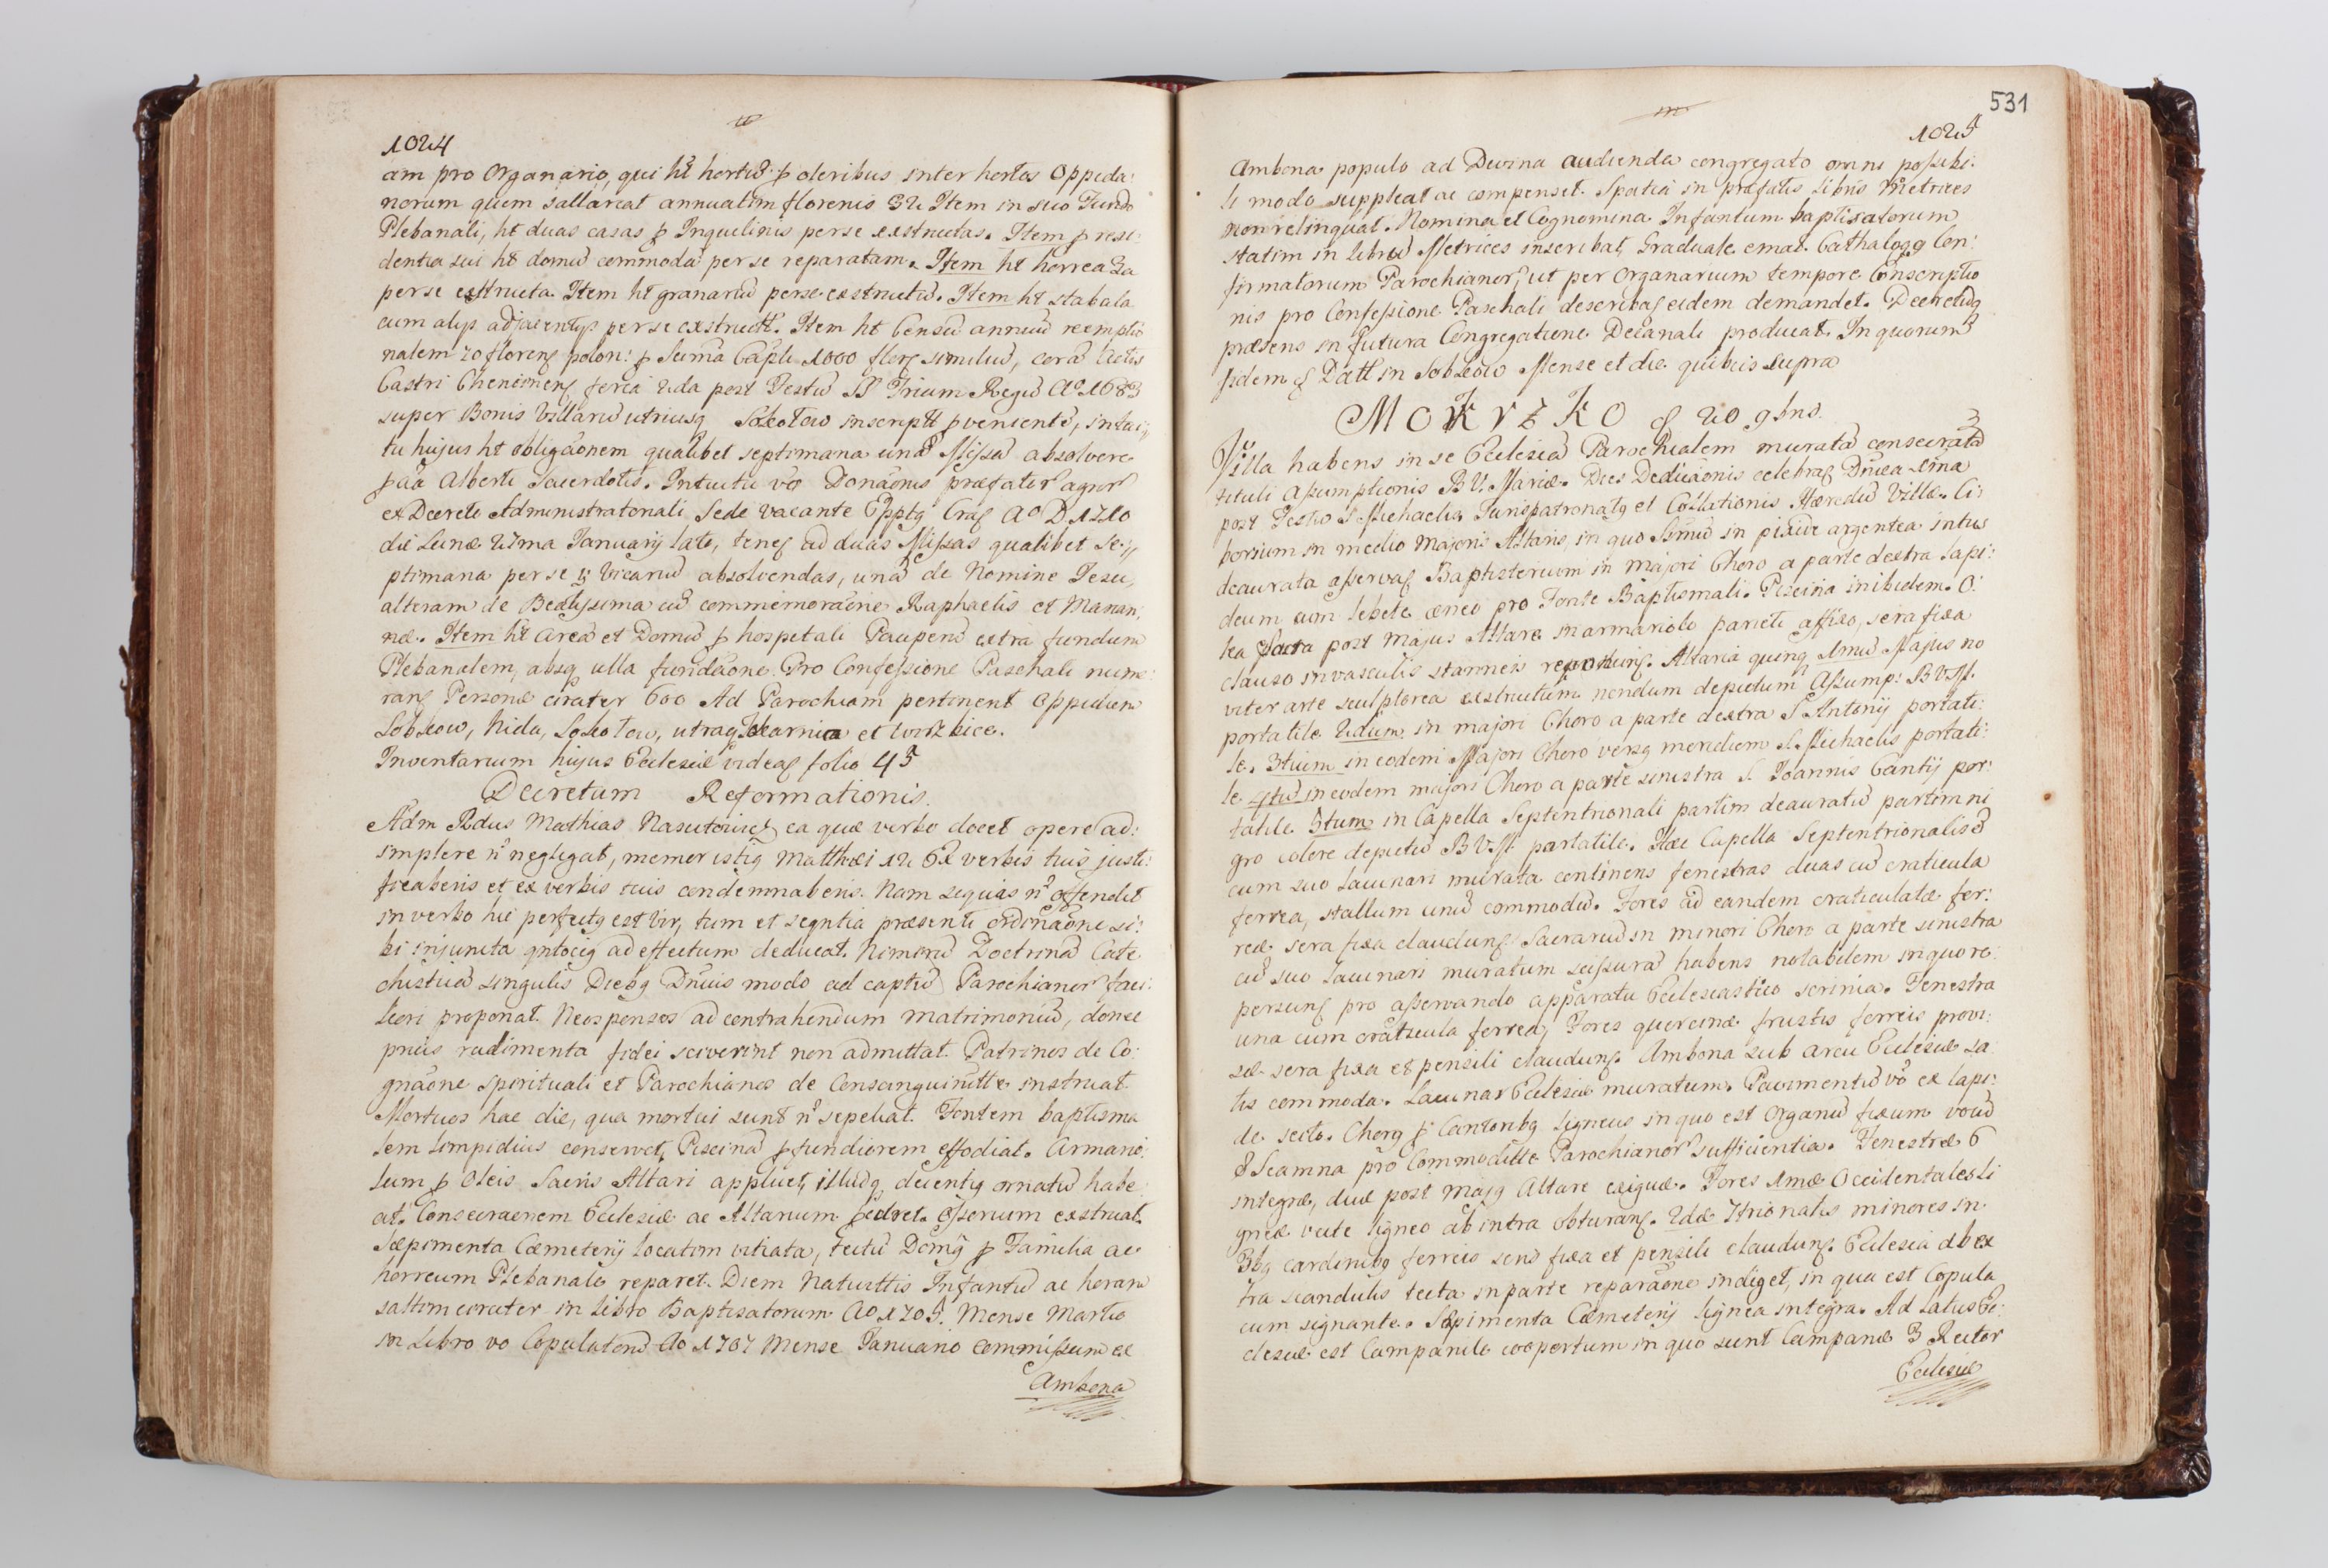 1024
am pro Organario, qui ht hortũ p oleribus inter hortos Oppida:
norum quem sallariat annuatim florenis 32 Item in suo Fundo
Plebanali, ht duas casas p Inquilinis per se exstructas. Item p resi:
dentia sui ht domũ commodã per se reparatam. Item ht horrea 3a
per se exstructa. Item ht granariũ per se exstructũ. Item ht stabula
cum alijs adjacentijs per se exstructt. Item ht Censũ annuũ reemptio
nalem 70 floreng polon: p Suma Capli 1000 flor similiũ, corã Actis
Castri Chencineng feria 2da post Festũ SS Trium Regũ Ao 1683
super Bonis Villarũ utriusq Sokołow inscriptt pvenientẽ, intui
tu hujus ht obligãonem qualibet septimana unã Missã absolvere
p aã Alberti Sacerdotis. Intuitu vo Donãonis præfator agror
ex Decreto Administratoriali Sede vacante Epptg Crac Ao D 1710
die Lunæ 27ma Januarij lato, teneg ad duas Missas qualibet Se:
ptimana per se vicariũ absolvendas, unã de Nomine Jesu,
alteram de Beatissima cũ commemorãone Raphaelis et Marian:
næ. Item ht areã et Domũ p hospitali Pauperũ extra fundum
Plebanalem, absq ulla fundãone. Pro Confessione Paschali nume:
rang Personæ circiter 600 Ad Parochiam pertinent Oppidum
Sobkow, Nida, Sokołow, utraq et Wierzbica.
Inventarium hujus Ecclesiæ videag folio 45
Decretum Reformationis.
Adm Rdus Mathias Nasutowicz ea quæ verbo docet opere ad:
implere n negligat, memor istiq Matthæi 12 Ex verbis tuis justi:
ficaberis et ex verbis tuis condemnaberis. Nam siquis no offendit
in verbo hic perfectg est vir, tum et sequntia præsenti ordinãone si:
bi injuncta qntocig ad effectum deducat. Nimirũ Doctrinã Cate
chisticã singulis Diebg Dnicis modo ad captũ Parochianor faci:
liori proponat. Neosponsos ad contrahendum matrimoniũ, donec
prius rudimenta fidei sciverint non admittat. Patrinos de Co:
gnãone Spirituali et Parochianos de Consanguinitte instruat
Mortuos hac die, qua mortui sunt no sepeliat. Fontem baptisma
lem limpidius conservet, Piscinã pfundiorem effodiat. Armario:
lum p Oleis Sacris Altari applicet, illudq decentiq ornatũ habe
at. Consecraõnem Ecclesiæ ac Altarium pcuret. Osserium exstruat.
Sæpimenta Cæmeterij locatim vitiata, tectũ Domg p Familia ac
horreum Plebanale reparet. Diem Nativittis Infantiũ ac horam
saltim circiter in Libro Baptisatorum Ao 1705. Mense Martio
in Libro vo Copulatorũ Ao 1707 Mense Januario commissum ex
Ambona
531
1025
Ambona populo ad Divina audienda congregato omni possibi:
li modo suppleat ac compenset. Spatia in præfatis Libris Metrices
non relinquat. Nomina et Cognomina Infantum baptisatorum
statim in librũ Metrices inscribat, Graduale emat. Cathalogg Con:
firmatorum Parochianor, ut per Organarium tempore Conscriptio
nis pro Confessione Paschali describag eidem demandet. Decretũq
præsens in futura Congregatione Decanali producat. In quorum
fidem Datt in Sobkow Mense et die quibus supra
MOKRZKO 20 gbris
Villa habens in se Ecclesiã Parochialem muratã consecratã
tituli Assumptionis B V. Mariæ. Dies Dedicãonis celebrag Dnica 1ma
post Festo S Michaelis, Jurispatronatg et Collationis Hæredũ Villæ. Ci:
borium in medio Majoris Altaris, in quo Ssmũ in pixide argentea intus
deaurata asservag Baptisterium in majori Choro a parte dextra lapi:
deum cum lebete æneo pro Fonte Baptismali. Piscina inibidem. O:
lea Sacra post Majus Altare in armariolo parieti affixo, sera fixa
clauso in vasculis stanneis reponung. Altaria quinq 1mũ Majus no
viter arte sculptorea exstructum nondum depictum Assump: B V M.
portatile 2dum in majori Choro a parte dextra S Antonij portati:
le. 3tium in eodem Majori Choro versq meridiem S. Michaelis portati:
le 4tũ in eodem majori Choro a parte sinistra S. Joannis Cantij por:
tatile 5tum in Capella Septentrionali partim deauratũ partim ni
gro colore depictũ B V M. portatile. Hæc Capella Septentrionalis
cum suo Lacunari murata continens fenestras duas cũ craticula
ferrea, stallum unũ commodũ. Fores ad eandem craticulatæ fer:
reæ sera fixa claudung Sacrariũ in minori Choro a parte sinistra
cũ suo Lacunari muratum scissurã habens notabilem in quo re:
periung pro asservando apparatu Ecclesiastico scrinia. Fenestra
una cum craticula ferrea, Fores quercinæ frustis ferreis provi:
sæ sera fixa et pensili claudung. Ambona sub arcu Ecclesiæ sa:
tis commoda. Lacunar Ecclesiæ muratum. Pavimentũ vo ex lapi:
de secto. Chorg p Cantoribg ligneus in quo est Organũ fixum vocũ
8 Scamna pro Commoditte Parochianor sufficientia. Fenestræ 6
integræ, duæ post majg Altare exiguæ. Fores 1mæ Occidentales li
gneæ vecte ligneo ab intra obturang. 2dæ 7trionalis minores in
3bg cardinibg ferreis sera fixa et pensili claudung. Ecclesia ab ex
tra scandulis tecta in parte reparãone indiget, in qua est Copula
cum signante. Sæpimenta Cæmeterij lignea integra. Ad Latus Ec:
clesiæ est Campanile coopertum in quo sunt Campanæ 3 Rector
Ecclesiæ